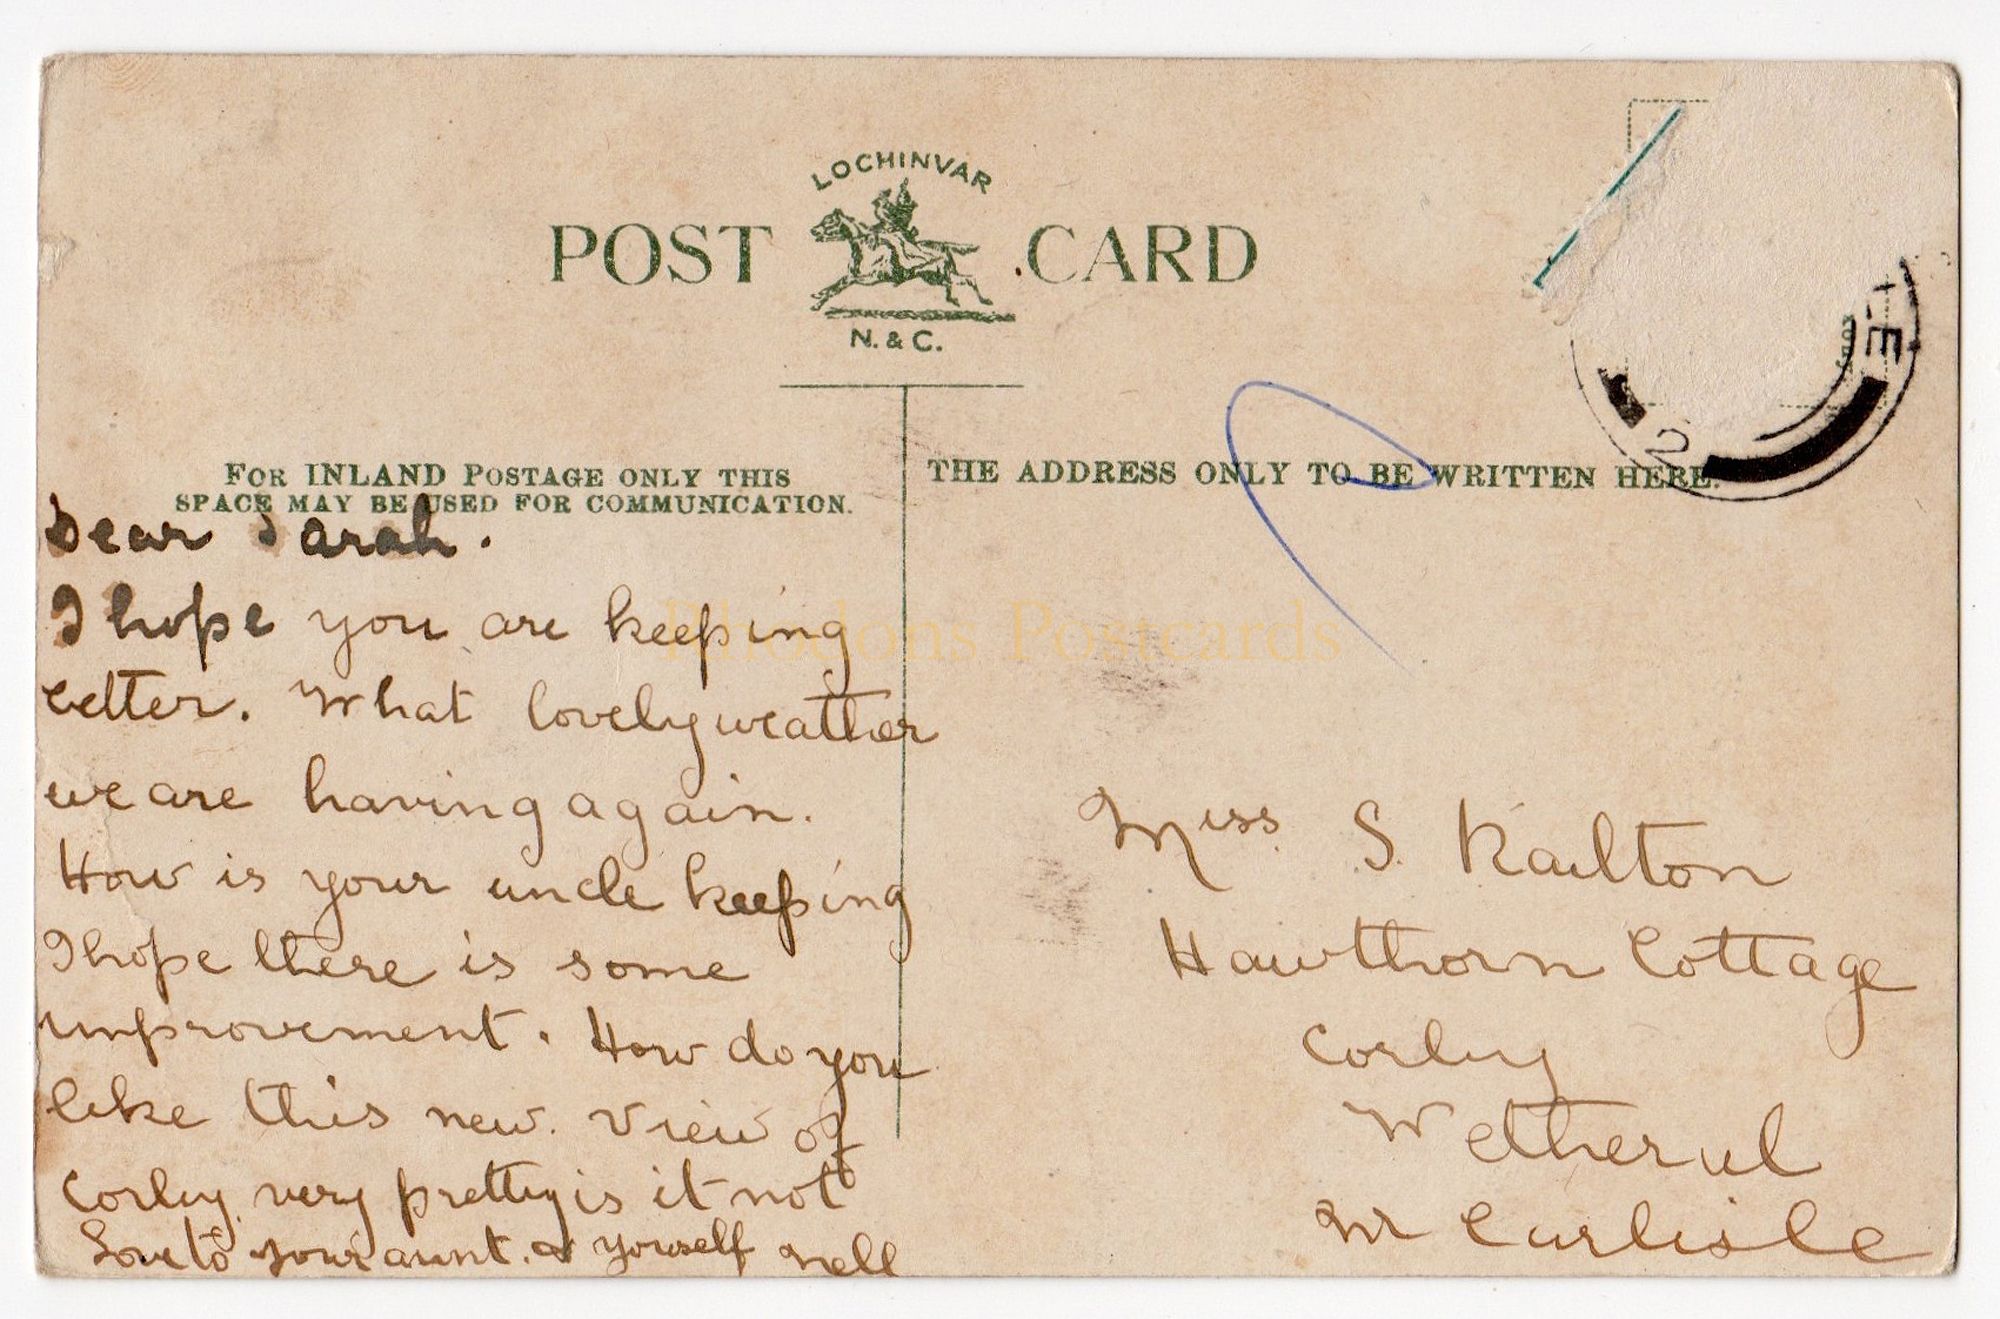 LOCHINVAR
POST CARD
N. & C.
FOR INLAND POSTAGE ONLY THIS
SPACE MAY BE USED FOR COMMUNICATION.
THE ADDRESS ONLY TO BE WRITTEN HERE.
Dear Sarah.
I hope you are keeping
better. What lovely weather
we are having again.
How is your uncle keeping
I hope there is some
improvement. How do you
like this new view of
Corby, very pretty is it not
Love to your aunt. & yourself Nell
Miss S. Railton
Hawthorn Cottage
Corby
Wetheral
Nr Carlisle
2
Rhodons Postcards